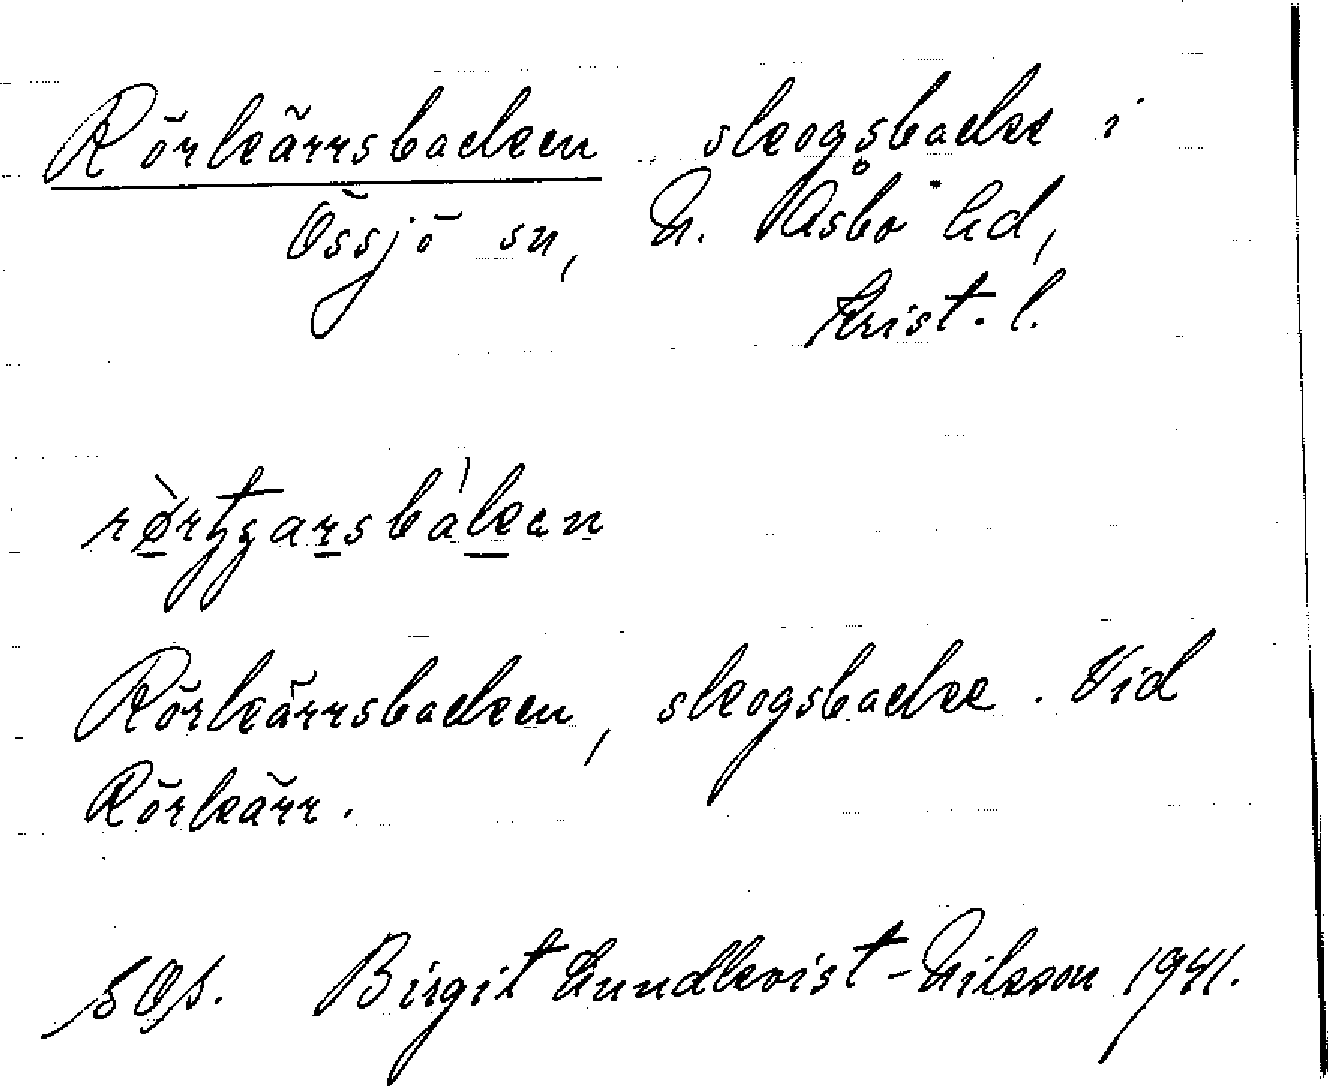 Rörkärrsbacken skogsbacke i
Össjö sn, N. Åsbo hd,
Krist. l.
Rörkärrsbacken, skogsbacke. Vid
Rörkärr.
Birgit Lundkvist-Nilsson 1941.